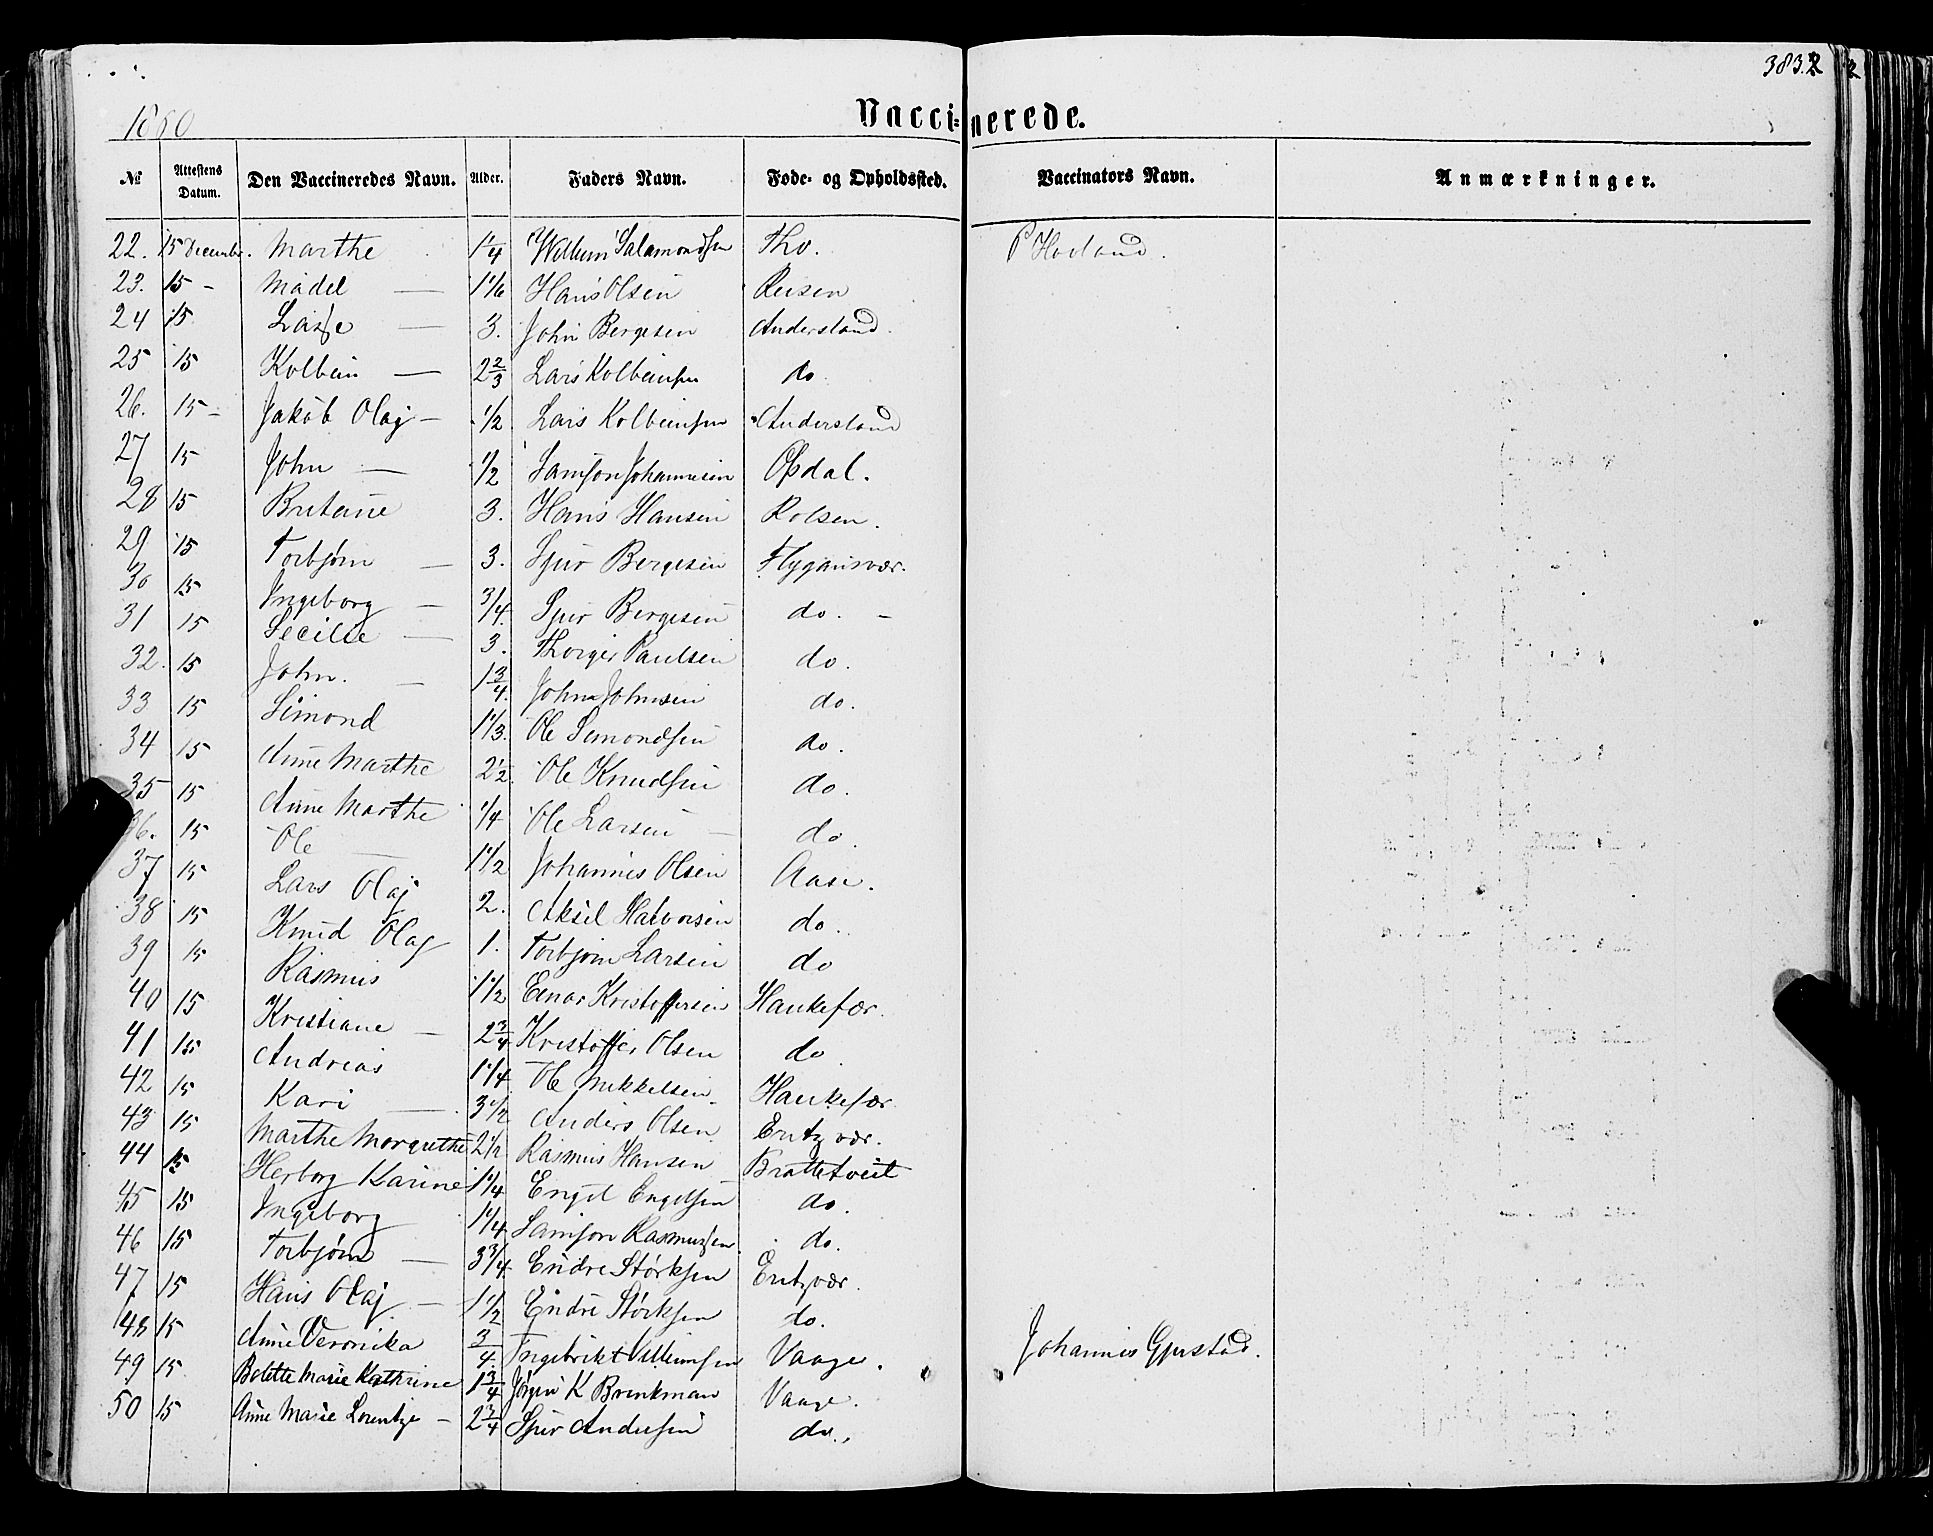 383.2
1860
Vaccinerede.
№ Attestens Datum. Den Vaccineredes Navn. Alder. Faders Navn. Føde- og Opholdssted. Vaccinators Navn. Anmærkninger.
22. 15 December. Marthe 1/4 Willum Salamondsen Tho. P Hovland.
23. 15 - Madel — 1 1/6 Hans Olsen Reisen
24 15 Lasse — 3. John Bergesen Andersland.
25 15 Kolbein — 2 2/3 Lars Kolbeinsen do.
26. 15 - Jakob Olaj — 1/2 Lars Kolbeinsen Andersland
27 15 John — 1/2 Samson Johannesen Opdal.
28 15 Britane 3. Hans Hansen Rolsen.
29 15 Torbjørn — 3. Sjur Bergesen Flygansvær.
30 15 Ingeborg — 3/4. Sjur Bergesen do. -
31 15 Secilie — 3. Thorger Paulsen do.
32. 15 John. — 1 3/4. John Johnsen do.
33 15 Simond 1 1/3. Ole Simondsen do.
34 15 Anne Marthe 2 1/2. Ole Knudsen do.
35 15 Anne Marthe 1/4 Ole Larsen — do.
36. 15 Ole — 1 1/2 Johannes Olsen Aase.
37 15 Lars Olaj 2. Aksel Halvorsen do.
38 15 Knud Olaj 1. Torbjørn Larsen do
39 15 Rasmus 1 1/2 Einar Kristoffersen Haukefær.
40 15 Kristiane — 2 3/4 Kristoffer Olsen do.
41 15 Andreas 1 1/4 Ole Mikkelsen. Haukefær
42 15 Kari — 3 1/2 Anders Olsen. Eritzvær.
43 15 Marthe Margrethe 2 1/2 Rasmus Hansen Brattetveit
44 15 Herborg Karine 1 1/4 Engel Engelsen do.
45 15 Ingeborg 1 1/4 Samson Rasmussen do.
46 15 Torbjørn — 3 3/4 Endre Størksen Eritzvær.
47 15 Hans Olaj — 1 1/2 Endre Størksen do.
48 15 Anne Veronika 3/4. Ingebrikt Villumsen Vaage. Johannes Gjerstad.
49 15 Bolette Marie Kathrine 1 3/4 Jørgen K Brinkman Vaage.
50 15 Anne Marie Lorentze — 2 3/4 Sjur Andersen do.